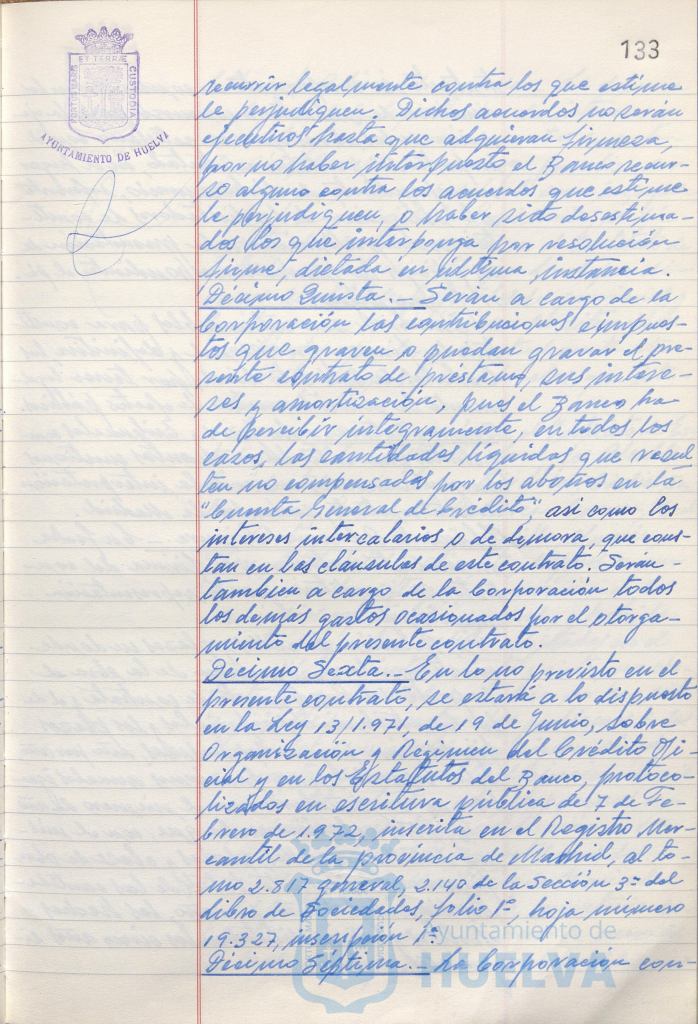 133
PORTUS MARIS ET TERRÆ CUSTODIA
AYUNTAMIENTO DE HUELVA
recurrir legalmente contra los que estime
le perjudiquen. Dichos acuerdos no serán
ejecutivos hasta que adquieran firmeza,
por no haber interpuesto el Banco recur-
so alguno contra los acuerdos que estime
le perjudiquen, o haber sido desestima-
dos los que interponga por resolución
firme, dictada en última instancia.
Décimo Quinta.- Serán a cargo de la
Corporación las contribuciones e impues-
tos que graven o puedan gravar el pre-
sente contrato de préstamo, sus intere-
ses y amortización, pues el Banco ha
de percibir íntegramente, en todos los
casos, las cantidades líquidas que resul
ten no compensadas por los abonos en la
"Cuenta General de Crédito", así como los
intereses intercalarios o de demora, que cons-
tan en las cláusulas de este contrato. Serán-
tambien a cargo de la Corporación todos
los demás gastos ocasionados por el otorga-
miento del presente contrato.
Décimo Sexta.- En lo no previsto en el
presente contrato, se estará a lo dispuesto
en la Ley 13/1.971, de 19 de Junio, sobre
Organización y Régimen del Crédito Ofi-
cial y en los Estatutos del Banco, protoco-
lizados en escritura pública de 7 de Fe-
brero de 1.972, inscrita en el Registro Mer-
cantil de la provincia de Madrid, al to-
mo 2.817 general, 2.140 de la Sección 3ª del
Libro de Sociedades, folio 1º, hoja número
19.327, inscripción 1ª.
Décimo Séptima.- La Corporación con-
Ayuntamiento de
HUELVA